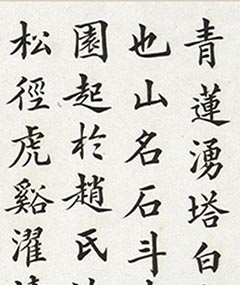 青蓮湧塔白
也山名石斗
園起於趙氏
松徑虎谿濯